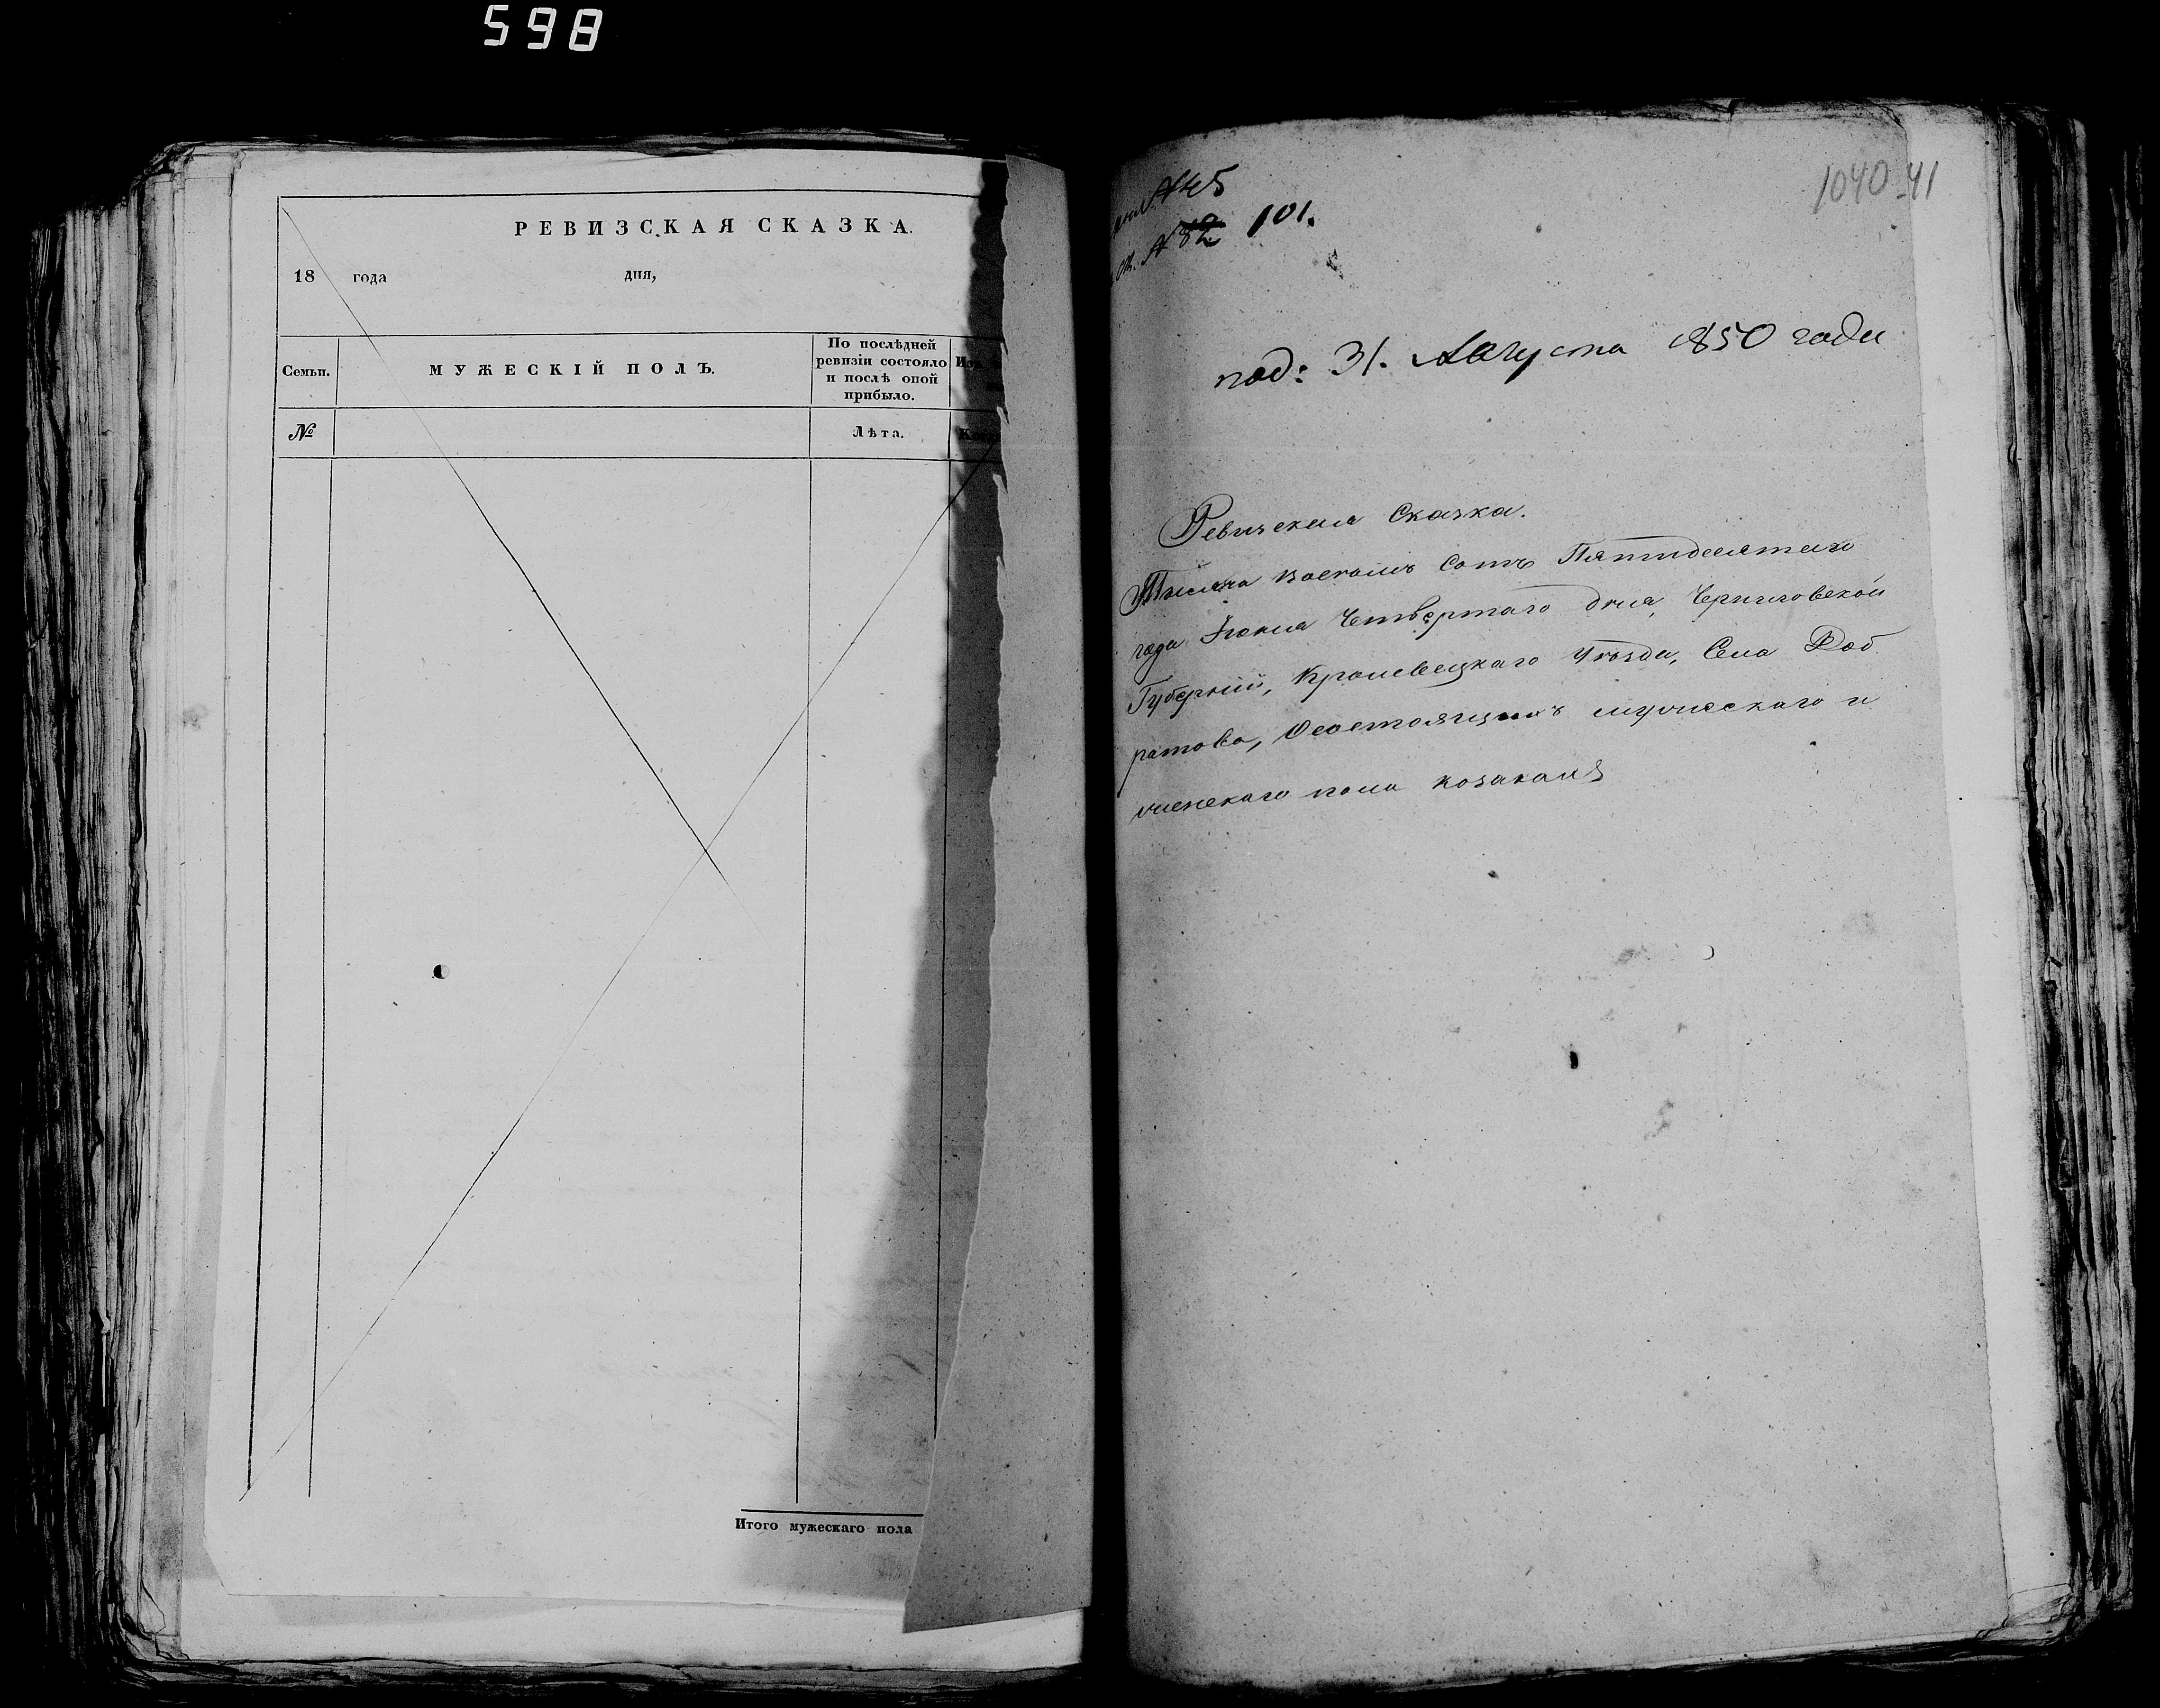 598
РЕВИЗСКАЯ СКАЗКА.
18 года дня,
Семьи.
МУЖЕСКІЙ ПОЛЪ.
По послѣдней
ревизіи состояло
и послѣ оной
прибыло.
№
Лѣта.
Итого мужескаго пола
№ 45
№ 82 101.
1040-41
под: 31. Августа 1850 года
Ревизская Сказка.
Тысяча восемь сотъ Пятидесятаго
года Іюня Четвертаго дня, Черниговской
Губерніи, Кролевецкаго Уѣзда, Села Доб
ратова, О состоящихъ мужескаго и
женскаго пола козакахъ